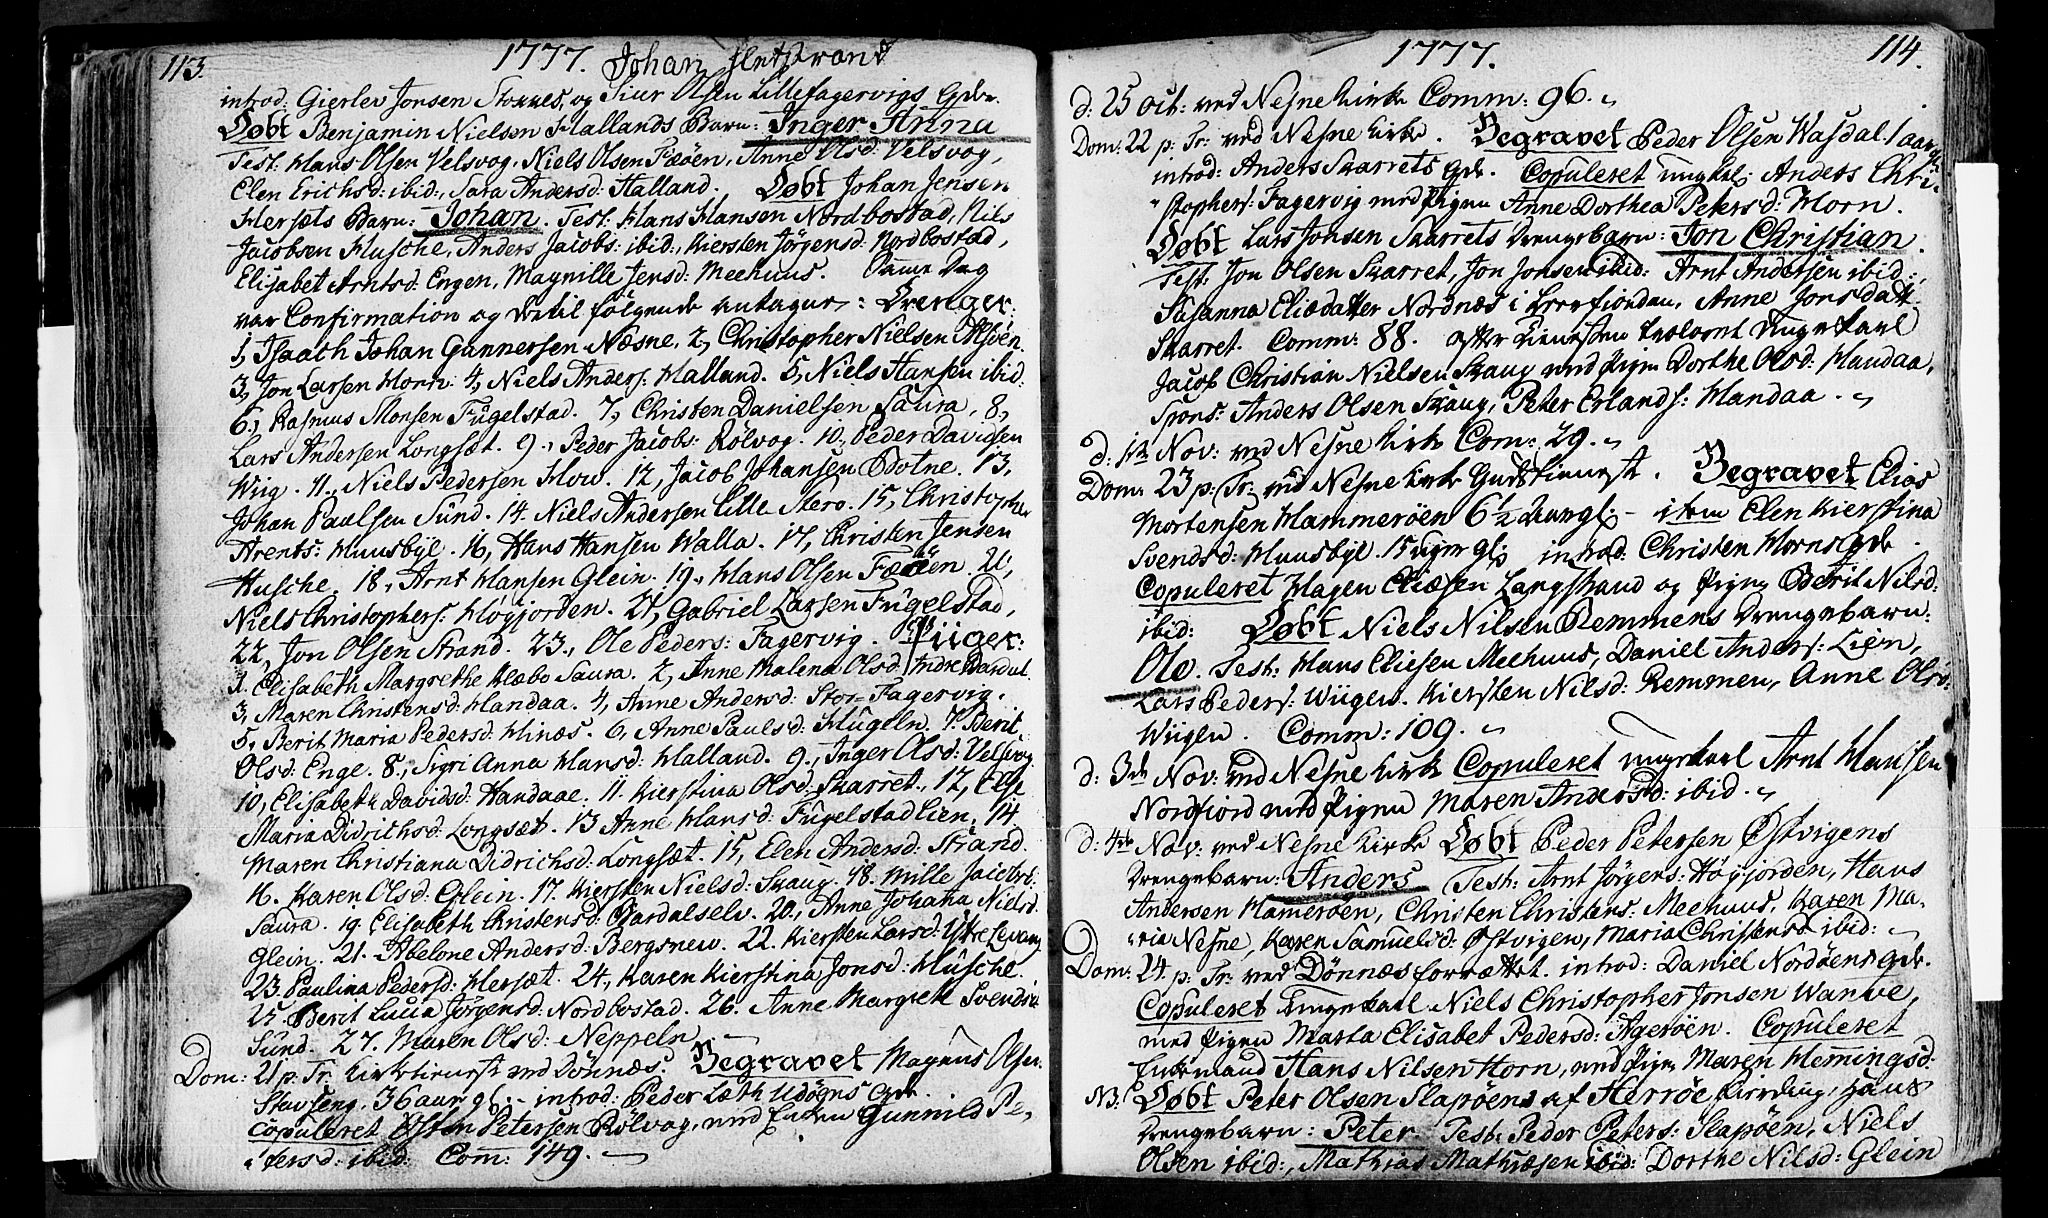 113.
1777. Johan
introd: Gierlev Jonsen Stokkes, og Siur Olsen Lillefagervigs Qdr.
Døbt Benjamin Nielsen Hallands Barn: Inger Anna
Test: Hans Olsen Velsvog, Niels Olsen Fæöen, Anne Olsd: Velsvog,
Elen Erichsd: ibid:, Sara Andersd: Halland. Døbt Johan Jensen
Hersets Barn: Johan. Test: Hans Hansen Nordbostad, Nils
Jacobsen Husche, Anders Jacobs: ibid:, Kiersten Jörgensd: Nordbostad,
Elisabet Arntsd: Engen, Magnille Jensd: Meehuus. Samme Dag
var Confirmation og dertil følgende antagne: Drenge:
1, Isaach Johan Gunnersen Næsne, 2, Christopher Nielsen Alsöen.
3, Jon Larsen Horn. 4, Niels Anders: Halland. 5, Niels Hansen ibid:
6, Rasmus Monsen Fùgelstad. 7, Christen Danielsen Saura, 8,
Lars Andersen Longsæt. 9., Peder Jacobs: Rölvog. 10., Peder Davidsen
Wiig. 11., Niels Pedersen Hov. 12, Jacob Johansen Botne. 13,
Johan Paulsen Sund. 14. Niels Andersen Lille Skero. 15, Christopher
Arents: Huusbÿe. 16, Hans Hansen Walla. 17, Christen Jensen
Husche. 18, Arnt Hansen Glein. 19., Hans Olsen Fæöen. 20,
Niels Christophers: Högjorden. 21, Gabriel Larsen Fùgelstad,
22, Jon Olsen Strand. 23., Ole Peders: Fagervig. Piiger:
1. Elisabeth Margrethe Klæbo Saura. 2, Anne Malena Olsd: Indre Bardal
3, Maren Christensd: Handaa. 4, Anne Andersd: Stor-Fagervig.
5, Berit Maria Pedersd: Hinæs. 6, Anne Paulsd: Hùgeln. 7. Berit
Olsd: Enge. 8., Sigri Anna Hansd: Halland. 9., Inger Olsd: Velsvog
10, Elisabeth Davidsd: Handaae. 11. Kierstina Olsd: Skarret. 12, Else
Maria Didrichsd: Longsæt. 13 Anne Hansd: Fùgelstadlien, 14.
Maren Christiana Didrichsd: Longsæt. 15, Elen Andersd: Strand.
16. Karen Olsd: Glein. 17. Kiersten Nielsd: Skaug. 18. Mille Jacobsd:
Saura. 19. Elisabeth Christensd: Bardalselv. 20., Anne Johana Nielsd.
Glein. 21. Abelone Andersd: Bergsnev. 22. Kiersten Larsd: Yttre Levang
23. Paulina Pedersd: Hersæt. 24., Karen Kierstina Jonsd: Husche.
25. Berit Lucia Jörgensd: Nordbostad. 26. Anne Margrete Svendsd:
Sund. 27. Maren Olsd: Neppeln.
Dom: 21 p: Tr: Kirketieneste ved Dönnæs. Begravet Magnus Olsen
Stavseng, 36 aar gl. introd: Peder Læth Udögns Qdr.
Copuleret Östen Petersen Rölvog, med Enken Gunnild Pe-
"tersd: ibid: Com: 149.
1777. 114.
d: 25 Oct: ved Nesne Kirke Comm: 96.
Dom: 22 p: Tr: ved Nesne Kirke. Begravet Peder Olsen Wasdal 1 aar gl.
introd: Anders Skarrets Qdr. Copuleret ungkl: Anders Chri-
"stophers: Fagervig med Pigen Anne Dorthea Petersd: Horn.
Døbt Lars Jonsen Skarrets Drengebarn: Jon Christian.
Test: Jon Olsen Skarret, Jon Jonsen ibid: Arnt Andersen ibid:,
Susanna Eliædatter Nordnæs i Leerfiorden, Anne Jonsdatt.
Skarret. Comm: 88. efter Tienesten trolovet Ungekarl
Jacob Christian Nielsen Skaug med Pigen Dorthe Olsd: Handaa,
Spons: Anders Olsen Skaug, Peter Erlands: Handaa.
d: 1te Nov: ved Nesne Kirke Com: 29.
Dom: 23 p: Tr: ved Nesne Kirke Gudstieneste. Begravet Elias
Mortensen Hammeröen 6 1/2 Aar gl: item Elen Kierstina
Svendsd: Huusbÿe 15 uger gl: introd: Christen Horns Qdr.
Copuleret Hagen Eliæsen Langstrand og Pigen Berit Nilsd:
ibid: Døbt Niels Nilsen Remmens Drengebarn:
Ole. Test: Hans Eliesen Meehuus, Daniel Anders: Lien,
Lars Peders: Wiigen. Kiersten Nilsd: Remmen, Anne Olsd:
Wiigen. Comm: 109.
d: 3de Nov: ved Nesne Kirke Copuleret ungekarl Arnt Hansen
Nordfiord med Pigen Maren Andersd: ibid.
d: 4de Nov: ved Nesne Kirke Døbt Peder Petersen Østvigens
Drengebarn: Anders Test: Arnt Jörgens: Högjorden, Hans
Andersen Hameröen, Christen Christens: Meehuus, Karen Ma-
"ria Nesne, Karen Samuelsd: Østvigen, Maria Christensd ibid:
Dom: 24 p: Tr: ved Dönnæs forrettet. introd: Daniel Nordöens Qdr.
Copuleret Ungekarl Niels Christopher Jonsen Wanve,
med Pigen Marta Elisabet Pedersd: Ageröen. Copuleret
Enkemand Hans Nilsen Horn, med Pigen Maren Hemingsd:
NB. Døbt Peter Olsen Slapöens af Herröe hans
Drengebarn: Peter. Test: Peder Peters: Slapöen, Niels
Olsen ibid:, Mathias Mathiæsen ibid: Dorthe Nilsd: Glein